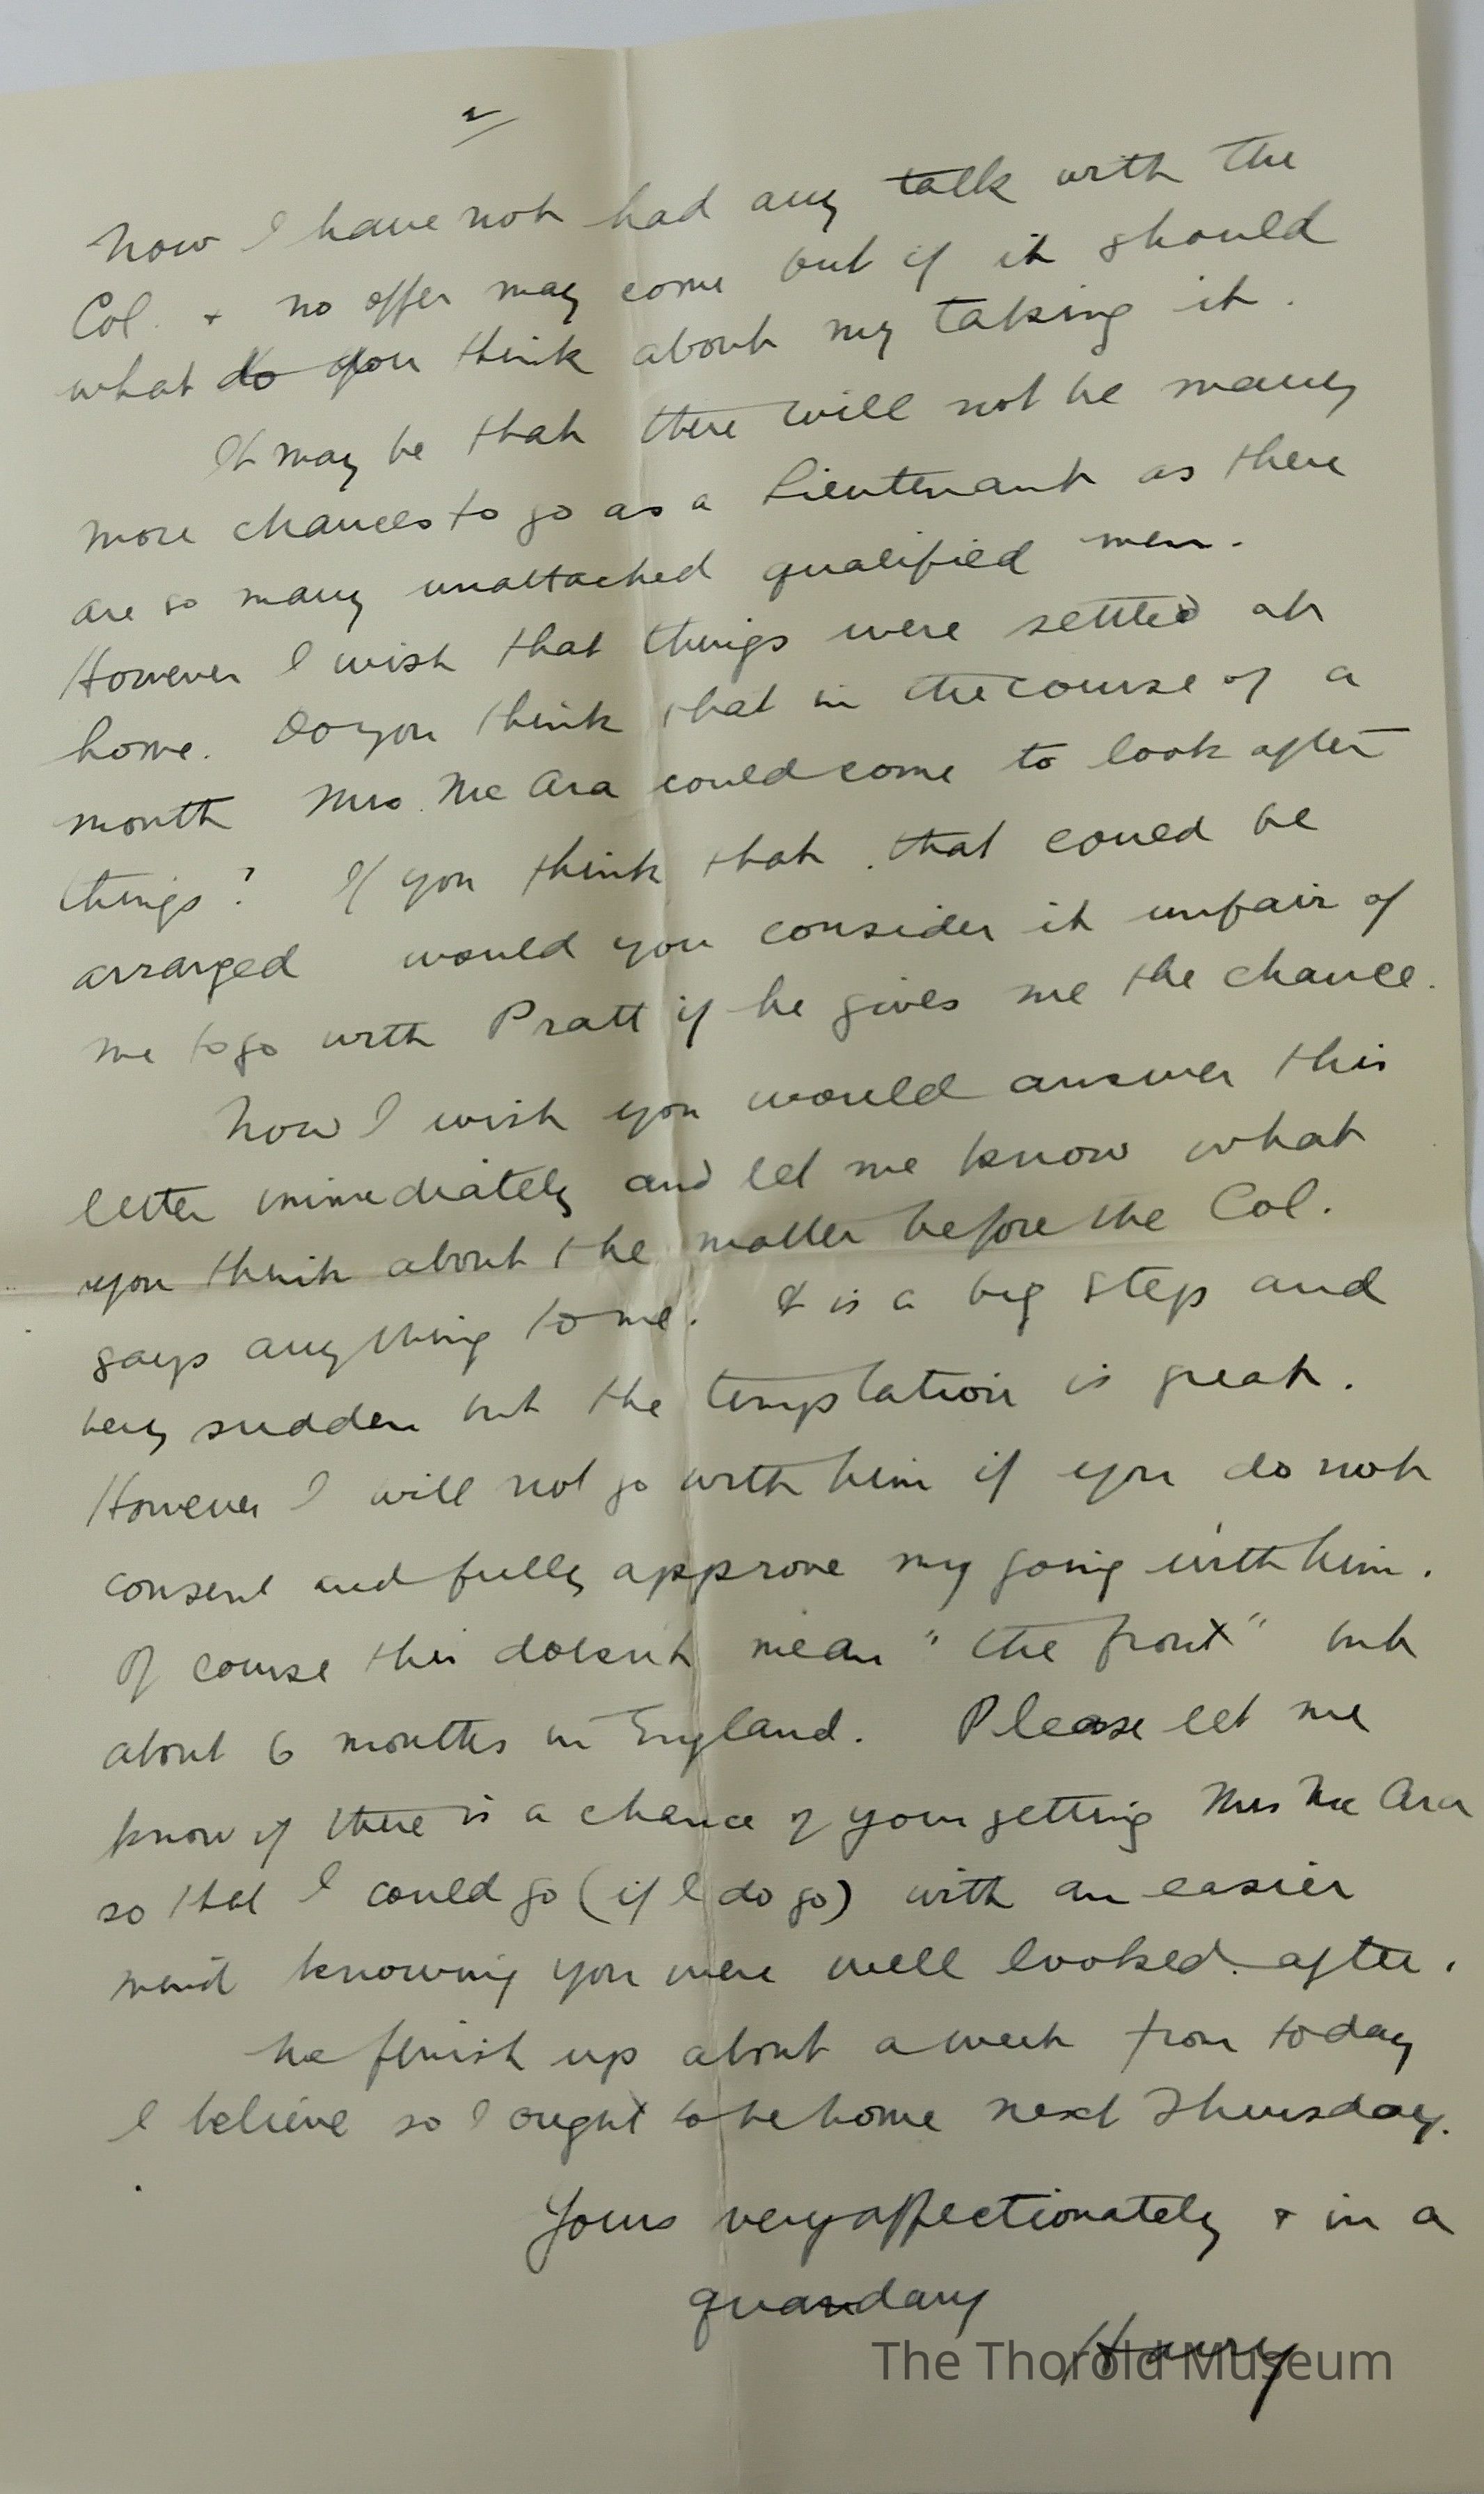 2
Now I have not had any talk with the
Col. + no offer may come but if it should
what do you think about my taking it.
It may be that there will not be many
more chances to go as a Lieutenant as there
are so many unattached qualified men.
However I wish that things were settled at
home. Do you think that in the course of a
month Mrs. Mc Ara could come to look after
things? If you think that that could be
arranged would you consider it unfair of
me to go with Pratt if he gives me the chance.
Now I wish you would answer this
letter immediately and let me know what
you think about the matter before the Col.
says anything to me. It is a big step and
very sudden but the temptation is great.
However I will not go with him if you do not
consent and fully approve my going with him.
Of course this doesn't mean "the front" but
about 6 months in England. Please let me
know if there is a chance of your getting Mrs Mc Ara
so that I could go (if I do go) with an easier
mind knowing you were well looked after.
We finish up about a week from today
I believe so I ought to be home next Thursday.
Yours very affectionately + in a
quandary
Harry
The Thorold Museum